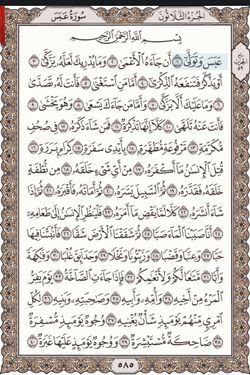 الجزء الثلاثون سورة عبس
بسم الله الرحمن الرحيم
عبس وتولى ١ أن جاءه الأعمى ٢ وما يدريك لعله يزكى ٣
أو يذكر فتنفعه الذكرى ٤ أما من استغنى ٥ فأنت له تصدى ٦
وما عليك ألا يزكى ٧ وأما من جاءك يسعى ٨ وهو يخشى ٩
فأنت عنه تلهى ١٠ كلا إنها تذكرة ١١ فمن شاء ذكره ١٢ في صحف
مكرمة ١٣ مرفوعة مطهرة ١٤ بأيدي سفرة ١٥ كرام بررة ١٦
قتل الإنسان ما أكفره ١٧ من أي شيء خلقه ١٨ من نطفة
خلقه فقدره ١٩ ثم السبيل يسره ٢٠ ثم أماته فأقبره ٢١ ثم إذا
شاء أنشره ٢٢ كلا لما يقض ما أمره ٢٣ فلينظر الإنسان إلى طعامه ٢٤
أنا صببنا الماء صبا ٢٥ ثم شققنا الأرض شقا ٢٦ فأنبتنا فيها
حبا ٢٧ وعنبا وقضبا ٢٨ وزيتونا ونخلا ٢٩ وحدائق غلبا ٣٠ وفاكهة
وأبا ٣١ متاعا لكم ولأنعامكم ٣٢ فإذا جاءت الصاخة ٣٣ يوم يفر
المرء من أخيه ٣٤ وأمه وأبيه ٣٥ وصاحبته وبنيه ٣٦ لكل
امرئ منهم يومئذ شأن يغنيه ٣٧ وجوه يومئذ مسفرة
٣٨ ضاحكة مستبشرة ٣٩ ووجوه يومئذ عليها غبرة ٤٠
٥٨٥